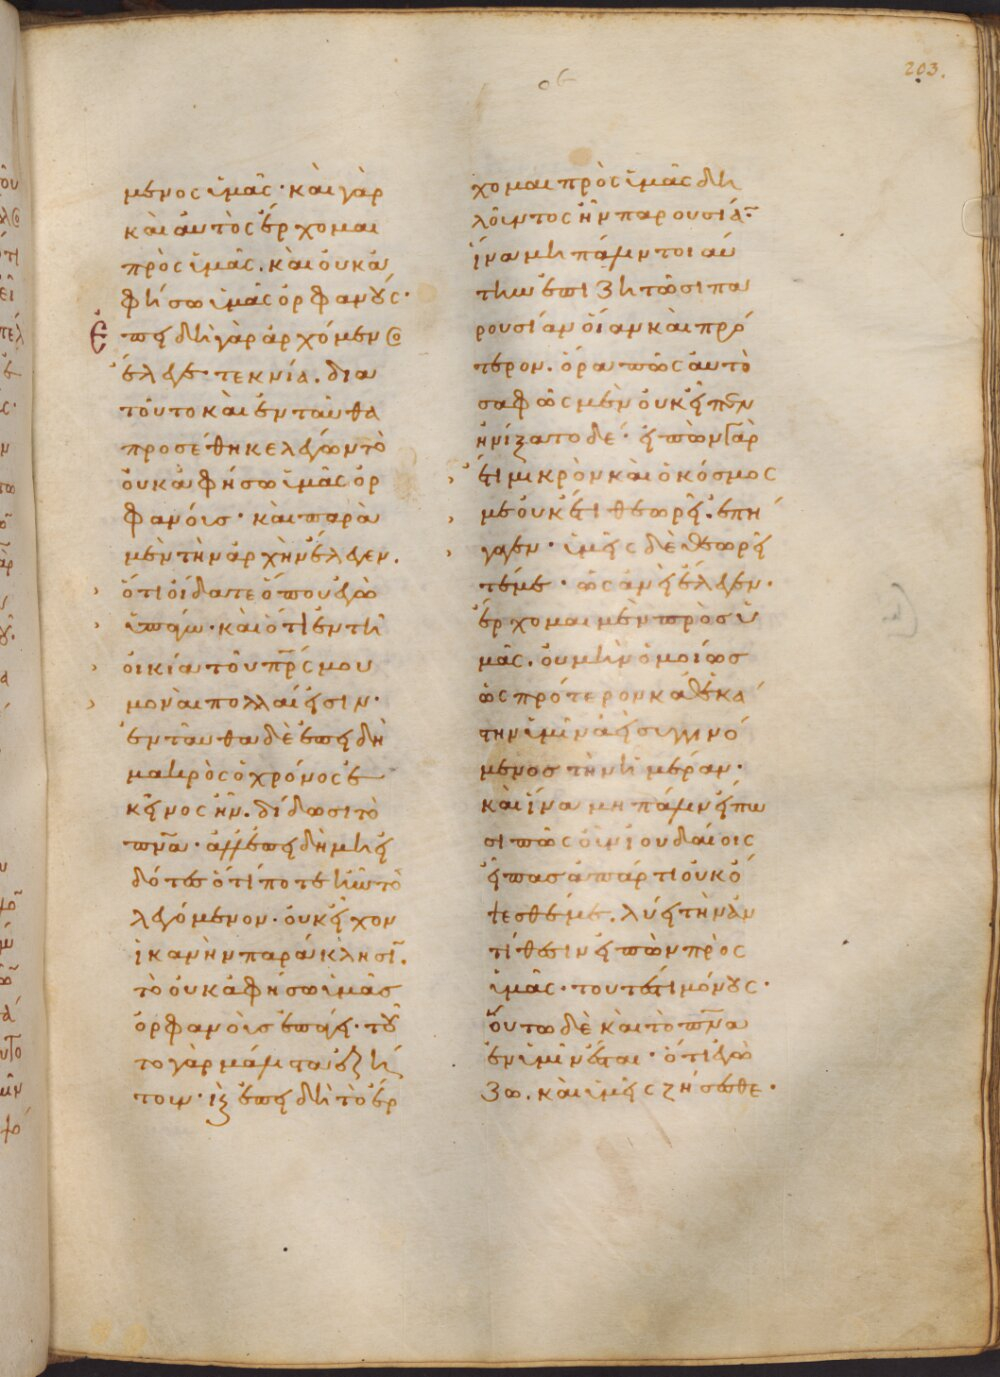 203.
οϛ
μενος ὑμᾶς· καὶ γὰρ
καὶ αὐτὸς ἔρχομαι
πρὸς ὑμᾶς. καὶ οὐκ ἀ
φήσω ὑμᾶς ὀρφανούς·
ἐπειδὴ γὰρ ἀρχόμενος
ἔλεγε· τεκνία. δια
τοῦτο καὶ ἐνταῦθα
προσέθηκε λέγων τὸ
οὐκ ἀφήσω ὑμᾶς ὀρ
φανούς· καὶ παρὰ
μὲν τὴν ἀρχὴν ἔλεγεν.
ὅτι οἴδατε ὅπου ἐγὼ
ὑπάγω· καὶ ὅτι ἐν τῆ
οἰκία τοῦ πρς μου
μοναὶ πολλαί εἰσιν·
ἐνταῦθα δὲ ἐπειδὴ
μακρὸς ὁ χρόνος ἐ
κεῖνος ἦν. δίδωσι τὸ
πνα· ἀλλ' ἐπειδὴ μὴ εἰ
δότες ὅτί ποτε ἦν τὸ
λεγόμενον· οὐκ εἶχον
ἱκανὴν παράκλησιν.
τὸ οὐκ ἀφήσω ὑμᾶς
ὀρφανοὺς ἐπάγει· τοῦ
το γὰρ μάλιστα ἐζή
τουν· ἐπειδὴ τὸ ἔρ
χομαι πρὸς ὑμᾶς δη
λοῦντος ἦν παρουσίαν
ἵνα μὴ πάλιν τοι αὐ
τὴν ἐπιζητῶσι πα
ρουσίαν οἵαν καὶ πρό
τερον. ὅρα πῶς αὐτὸ
σαφῶς μὲν οὐκ εἶπεν
ἠνίξατο δέ· εἰπὼν γὰρ
ἔτι μικρὸν καὶ ὁ κόσμος
με οὐκέτι θεωρεῖ. ἐπή
γαγεν· ὑμεῖς δὲ θεωρεῖ
τέ με· ὡς ἂν εἰ ἔλεγεν·
ἔρχομαι μὲν πρὸς ὑ
μᾶς. οὐ μὴν ὁμοίως
ὡς πρότερον καθ' ἑκά
την ὑμῖν ἀεὶ συγγινό
μενος τὴν ἡμέραν·
καὶ ἵνα μη πάλιν εἴπω
σι πῶς οὖν ἰουδαίοις
εἶπας ἀπάρτι οὐκ ὄ
ψεσθέ με. λύει τὴν ἀν
τίθεσιν εἰπὼν πρὸς
ὑμᾶς· τουτέστι μόνους·
οὕτω δὲ καὶ τὸ πνα
ἐν ὑμῖν ἔσται· ὅτι ἐγὼ
ζῶ. καὶ ὑμεῖς ζήσεσθε·